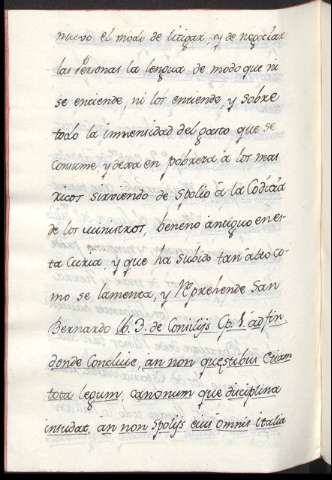 nuevo el modo de litigar, y de negociar
las Personas la lengua de modo que ni
se entiende, ni los entiende, y sobre
todo la inmensidad del gasto que se
consume y dexa en pobreza a los mas
ricos sirviendo de Spolio a la Codicia
de los ministros, beneno antiguo en es-
ta Curia, y que ha subido tan alto co-
mo se lamenta, y Reprehende San
Bernardo lib. 3. de Consilijs Cp. 1. ad fin
donde Concluie, an non questibus etiam
tota legum, canonum que disciplina
insudat, an non Spolijs eius omnis italia